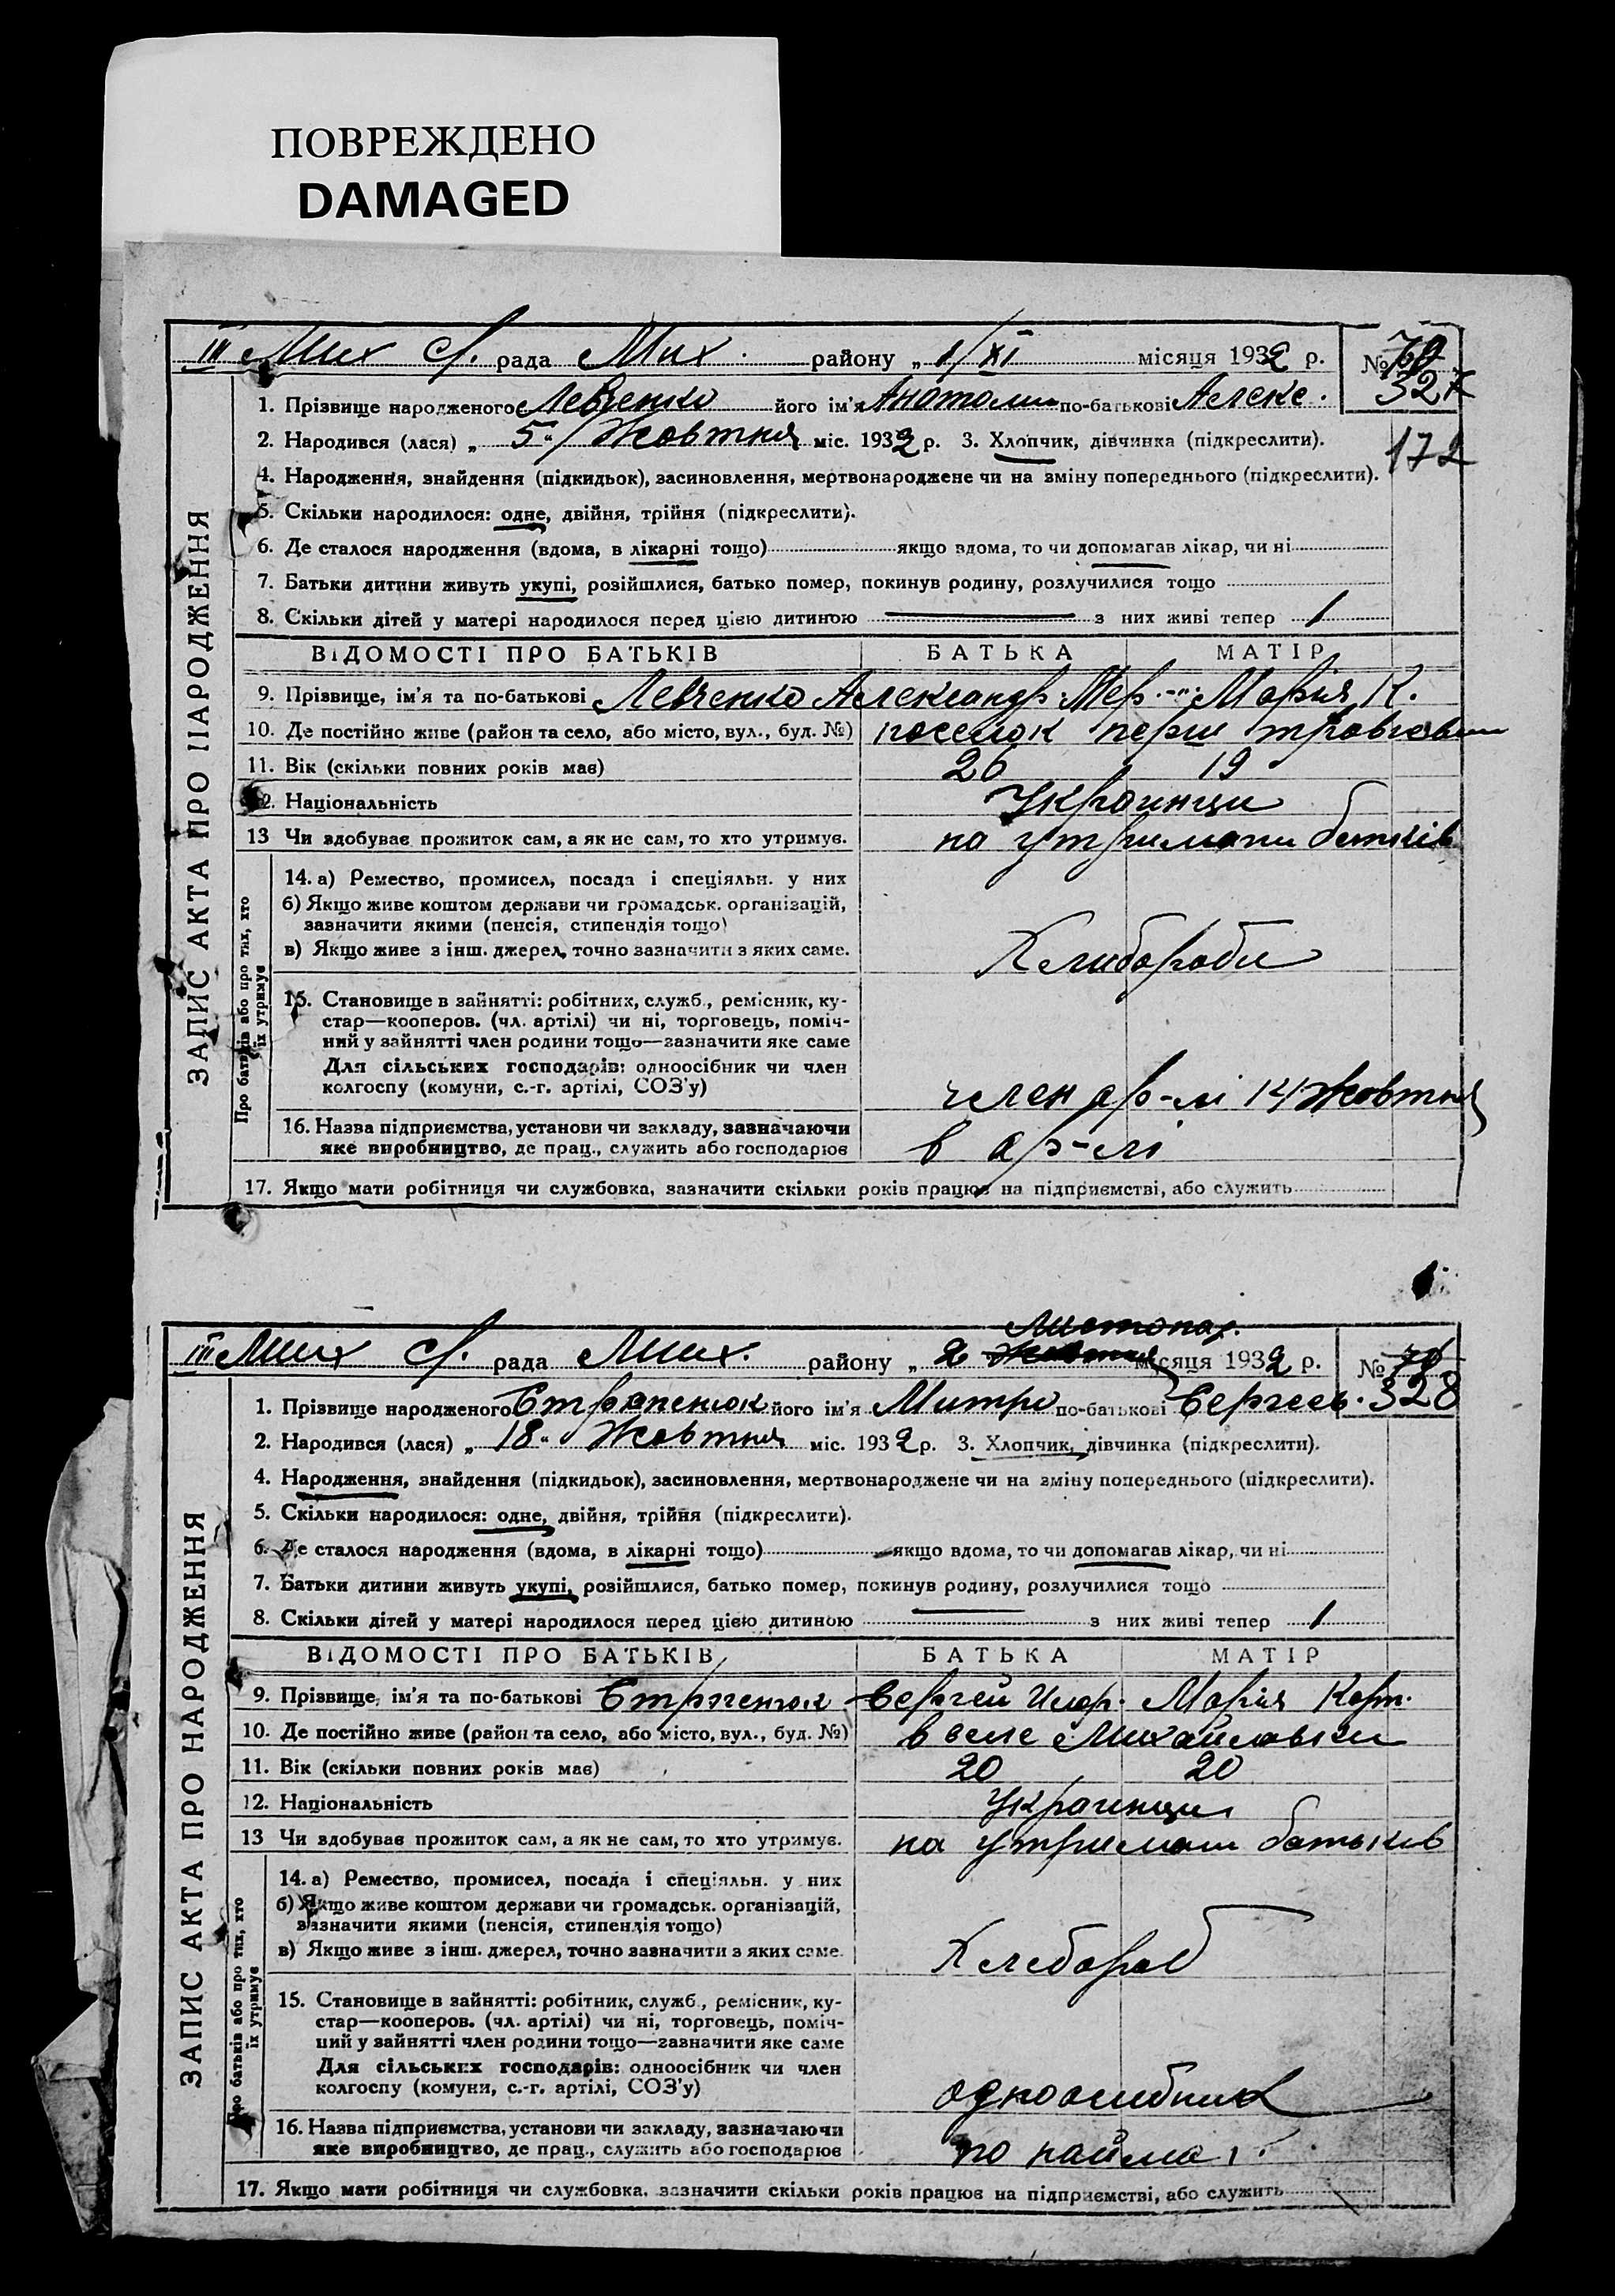 ПОВРЕЖДЕНО
DAMAGED
III Мих с/. рада Мих. району „ 1/XI місяця 1932 р. №
327
1. Прізвище народженого Левченко його ім'я Анатоли по-батькові Алекс.
2. Народився (лася) „ 5 “ Жовтня міс. 1932 р. 3. Хлопчик, дівчинка (підкреслити).
172
4. Народження, знайдення (підкидьок), засиновлення, мертвонароджене чи на зміну попереднього (підкреслити).
5. Скільки народилося: одне, двійня, трійня (підкреслити).
6. Де сталося народження (вдома, в лікарні тощо) якщо вдома, то чи допомагав лікар, чи ні
7. Батьки дитини живуть укупі, розійшлися, батько помер, покинув родину, розлучилися тощо
8. Скільки дітей у матері народилося перед цією дитиною — з них живі тепер 1
ЗАПИС АКТА ПРО НАРОДЖЕННЯ
ВІДОМОСТІ ПРО БАТЬКІВ БАТЬКА МАТІР
9. Прізвище, ім'я та по-батькові Левченко Александр. -"- Марія К.
10. Де постійно живе (район та село, або місто, вул., буд. №) поселок перш
11. Вік (скільки повних років має) 26 19
12. Національність Украинци
13 Чи здобуває прожиток сам, а як не сам, то хто утримує. на утримани батьків
Про батьків або про тих, хто їх утримує
14. а) Ремество, промисел, посада і спеціяльн. у них
б) Якщо живе коштом держави чи громадськ. організацій,
зазначити якими (пенсія, стипендія тощо)
в) Якщо живе з інш. джерел, точно зазначити з яких саме.
Хлибороби
15. Становище в зайнятті: робітник, служб., ремісник, ку-
стар—кооперов. (чл. артілі) чи ні, торговець, поміч-
ний у зайнятті член родини тощо—зазначити яке саме
Для сільських господарів: одноосібник чи член
колгоспу (комуни, с.-г. артілі, СОЗ'у)
член ар-лі 14 Жовтня
16. Назва підприємства, установи чи закладу, зазначаючи
яке виробництво, де прац., служить або господарює
в ар-лі
17. Якщо мати робітниця чи службовка, зазначити скільки років працює на підприємстві, або служить
Листопад.
III Мих с/. рада Мих. району „ 2 Жовтня місяця 1932 р. №
328
1. Прізвище народженого його ім'я Митро по-батькові Сергеев.
2. Народився (лася) „ 18 “ Жовтня міс. 1932 р. 3. Хлопчик, дівчинка (підкреслити).
4. Народження, знайдення (підкидьок), засиновлення, мертвонароджене чи на зміну попереднього (підкреслити).
5. Скільки народилося: одне, двійня, трійня (підкреслити).
6. Де сталося народження (вдома, в лікарні тощо) якщо вдома, то чи допомагав лікар, чи ні
7. Батьки дитини живуть укупі, розійшлися, батько помер, покинув родину, розлучилися тощо
8. Скільки дітей у матері народилося перед цією дитиною — з них живі тепер 1
ЗАПИС АКТА ПРО НАРОДЖЕННЯ
ВІДОМОСТІ ПРО БАТЬКІВ БАТЬКА МАТІР
9. Прізвище, ім'я та по-батькові Сергей Марія
10. Де постійно живе (район та село, або місто, вул., буд. №) в селе Михайловки
11. Вік (скільки повних років має) 20 20
12. Національність Украинци
13 Чи здобуває прожиток сам, а як не сам, то хто утримує. на утримани батьків
Про батьків або про тих, хто їх утримує
14. а) Ремество, промисел, посада і спеціяльн. у них
б) Якщо живе коштом держави чи громадськ. організацій,
зазначити якими (пенсія, стипендія тощо)
в) Якщо живе з інш. джерел, точно зазначити з яких саме.
Хлебороб
15. Становище в зайнятті: робітник, служб., ремісник, ку-
стар—кооперов. (чл. артілі) чи ні, торговець, поміч-
ний у зайнятті член родини тощо—зазначити яке саме
Для сільських господарів: одноосібник чи член
колгоспу (комуни, с.-г. артілі, СОЗ'у)
одноосибник
16. Назва підприємства, установи чи закладу, зазначаючи
яке виробництво, де прац., служить або господарює
по найма
17. Якщо мати робітниця чи службовка, зазначити скільки років працює на підприємстві, або служить